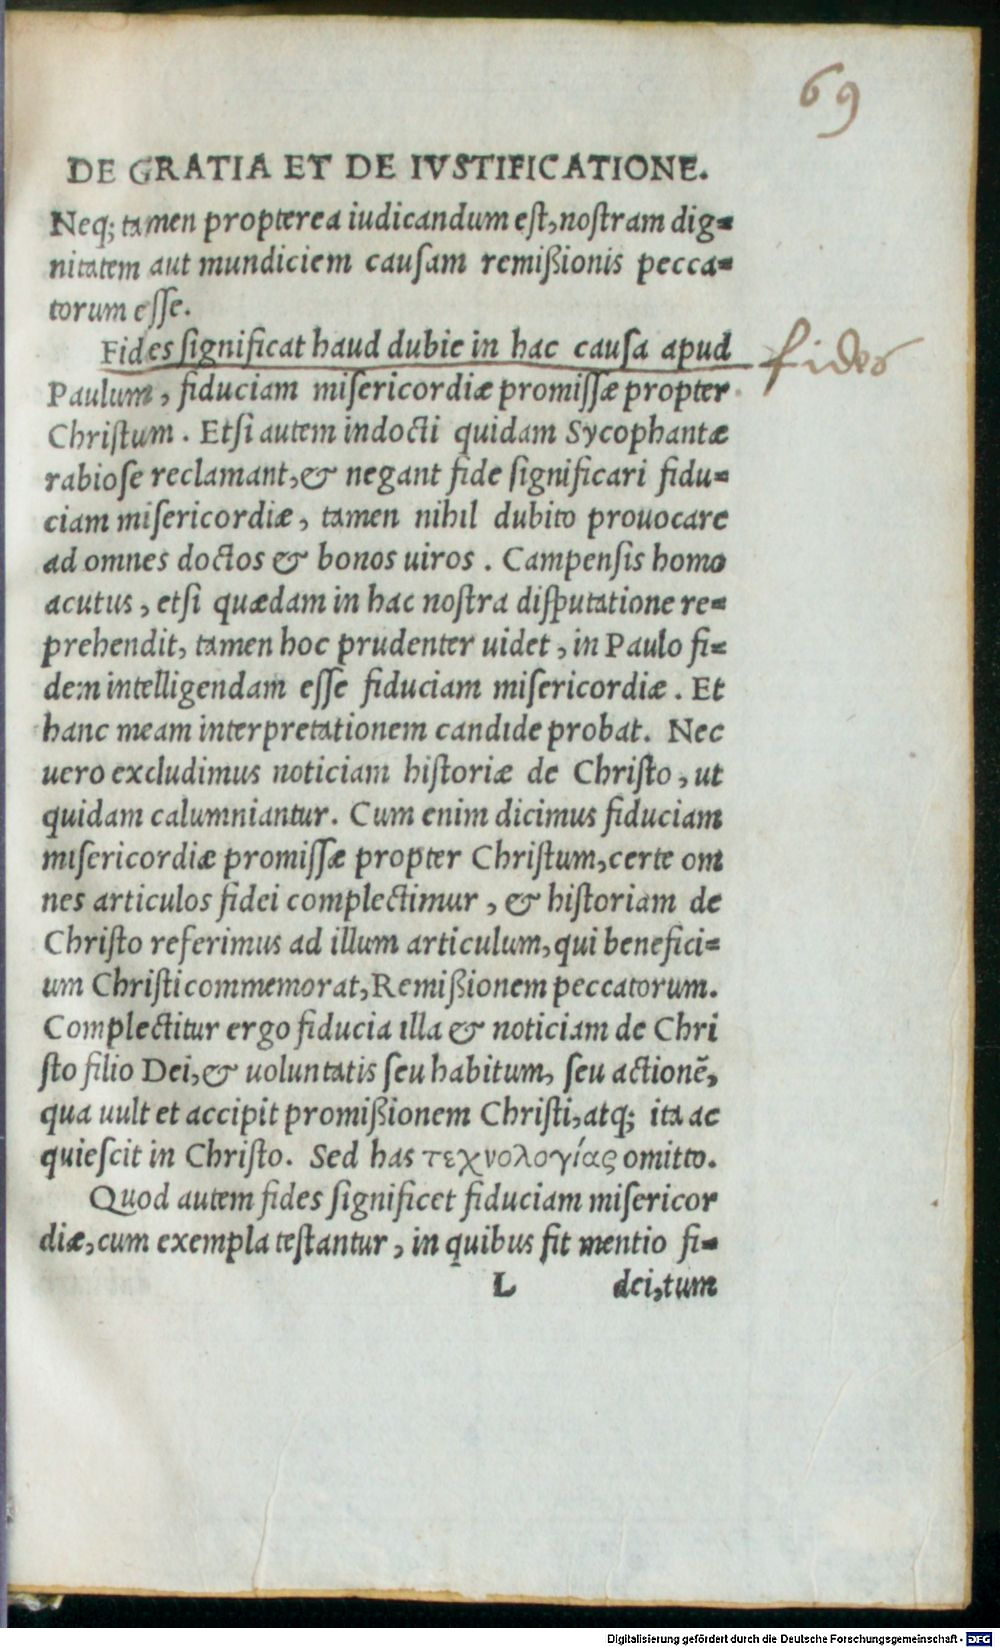 69
DE GRATIA ET DE IVSTIFICATIONE.
Neq; tamen propterea iudicandum est, nostram dig=
nitatem aut mundiciem causam remißionis pecca=
torum esse.
Fides significat haud dubie in hac causa apud
fides
Paulum, fiduciam misericordiæ promissæ propter
Christum. Etsi autem indocti quidam Sycophantæ
rabiose reclamant, & negant fide significari fidu=
ciam misericordiæ, tamen nihil dubito prouocare
ad omnes doctos & bonos uiros. Campensis homo
acutus, etsi quædam in hac nostra disputatione re=
prehendit, tamen hoc prudenter uidet, in Paulo fi=
dem intelligendam esse fiduciam misericordiæ. Et
hanc meam interpretationem candide probat. Nec
uero excludimus noticiam historiæ de Christo, ut
quidam calumniantur. Cum enim dicimus fiduciam
misericordiæ promissæ propter Christum, certe om
nes articulos fidei complectimur, & historiam de
Christo referimus ad illum articulum, qui benefici=
um Christi commemorat, Remißionem peccatorum.
Complectitur ergo fiducia illa & noticiam de Chri
sto filio Dei, & uoluntatis seu habitum, seu actionẽ,
qua uult et accipit promißionem Christi, atq; ita ac
quiescit in Christo. Sed has τεχνολογίας omitto.
Quod autem fides significet fiduciam misericor
diæ, cum exempla testantur, in quibus fit mentio fi=
L dei, tum
Digitalisierung gefördert durch die Deutsche Forschungsgemeinschaft - DFG